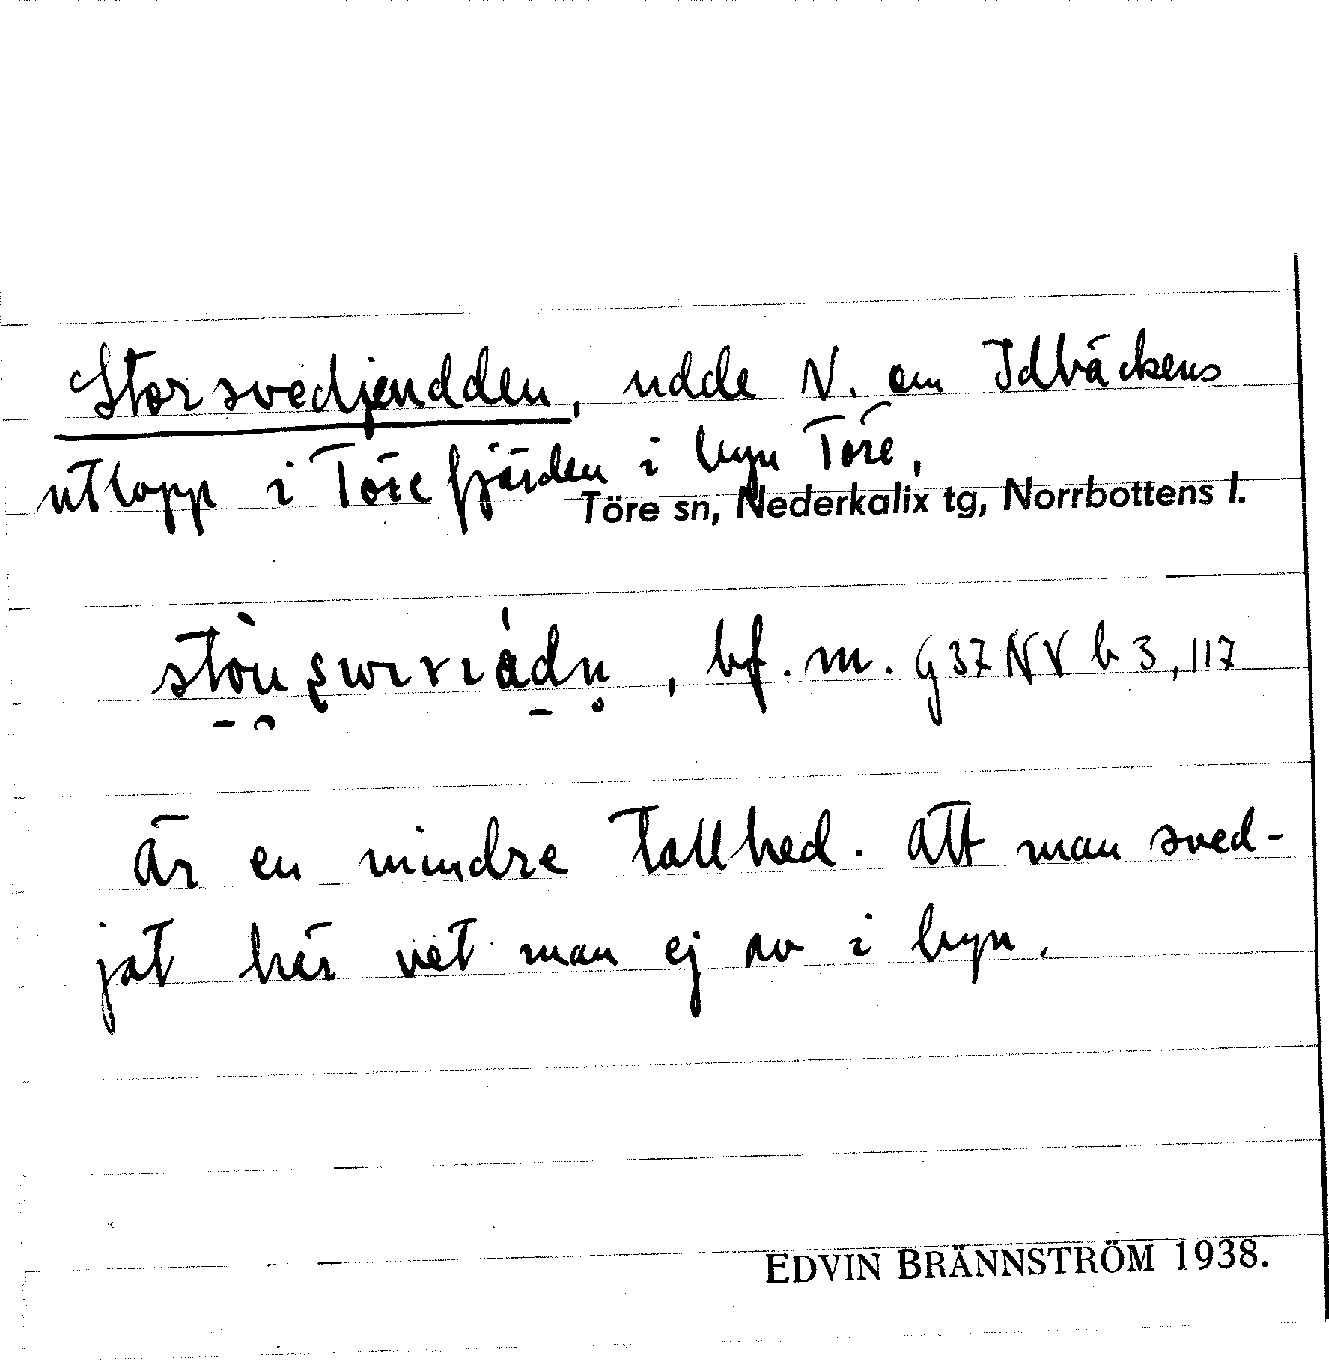 Storsvedjeudden, udde N. om Idbäckens
utlopp i Törefjärden i byn Töre,
Töre sn, Nederkalix tg, Norrbottens l.
, bf. m. G37NV b 3, 117
Är en mindre tallhed. Att man sved-
jat här vet man ej av i byn.
EDVIN BRÄNNSTRÖM 1938.